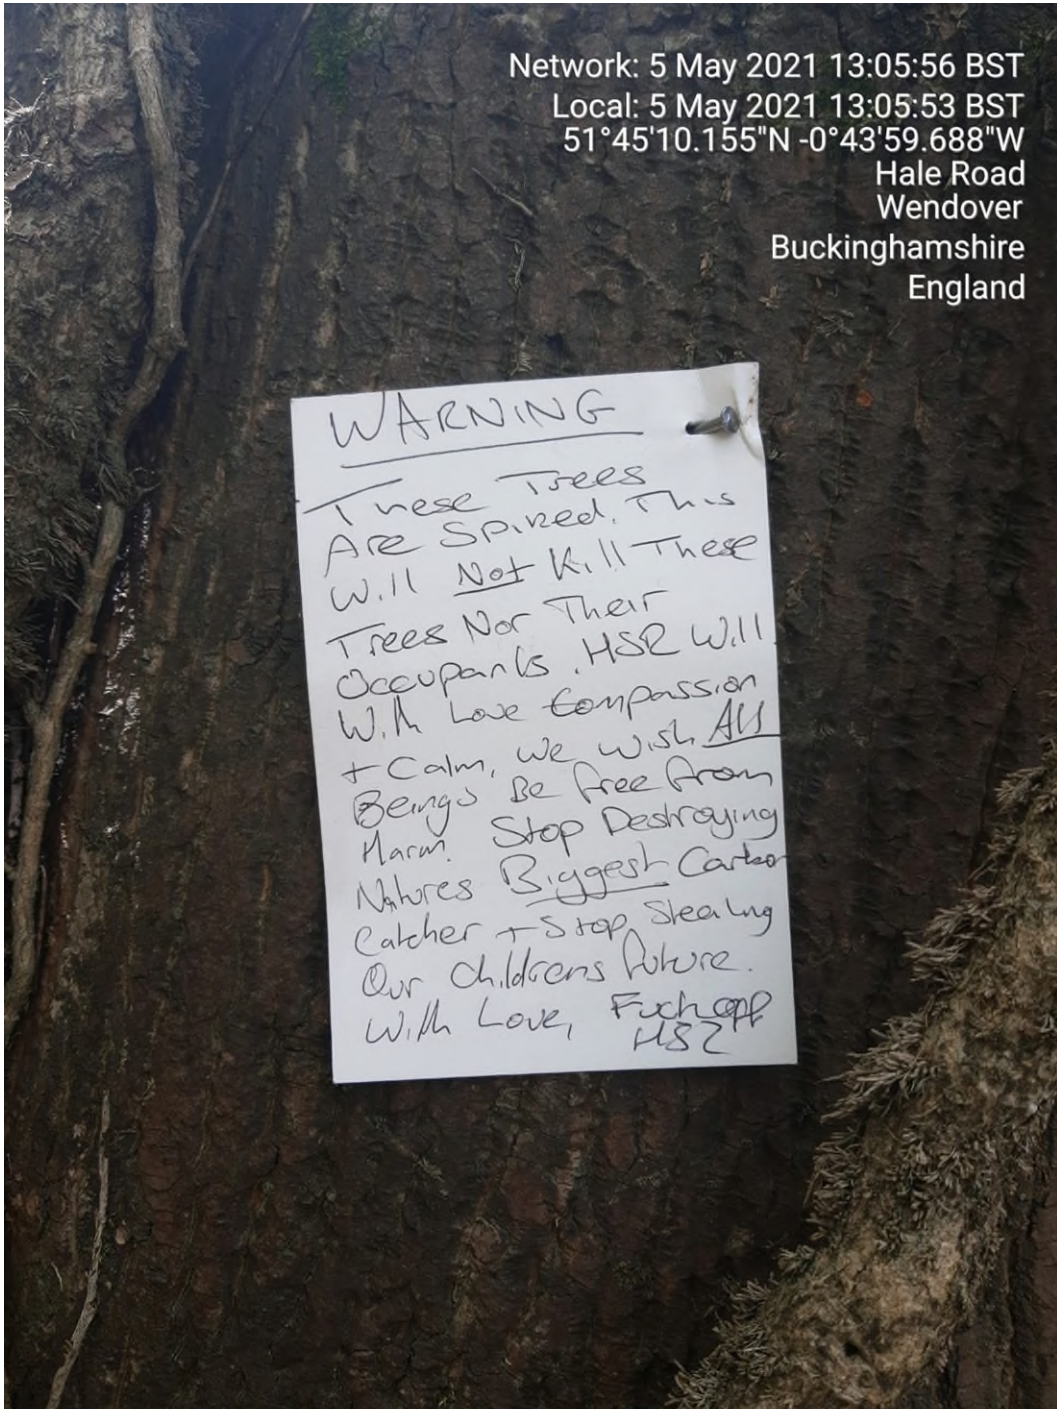 Network: 5 May 2021 13:05:56 BST
Local: 5 May 2021 13:05:53 BST
51°45'10.155"N -0°43'59.688"W
Hale Road
Wendover
Buckinghamshire
England
WARNING
These Trees
Are Spiked. This
Will Not Kill These
Trees Nor Their
Occupants. HS2 Will.
With Love Compassion
+ Calm, We Wish All
Beings Be free from
Harm. Stop Destroying
Natures Biggest Carbon
Catcher + Stop Stealing
Our Childrens future.
With Love, Fuck off
HS2